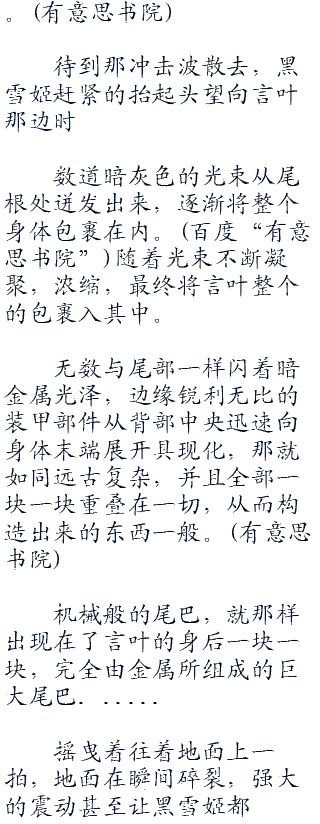 。(有意思书院)
待到那冲击波散去，黑
雪姬赶紧的抬起头望向言叶
那边时
数道暗灰色的光束从尾
根处迸发出来，逐渐将整个
身体包裹在内。(百度“有意
思书院”)随着光束不断凝
聚，浓缩，最终将言叶整个
的包裹入其中。
无数与尾部一样闪着暗
金属光泽，边缘锐利无比的
装甲部件从背部中央迅速向
身体末端展开具现化，那就
如同远古复杂，并且全部一
块一块重叠在一切，从而构
造出来的东西一般。(有意思
书院)
机械般的尾巴，就那样
出现在了言叶的身后一块一
块，完全由金属所组成的巨
大尾巴．．．．．．
摇曳着往着地面上一
拍，地面在瞬间碎裂，强大
的震动甚至让黑雪姬都